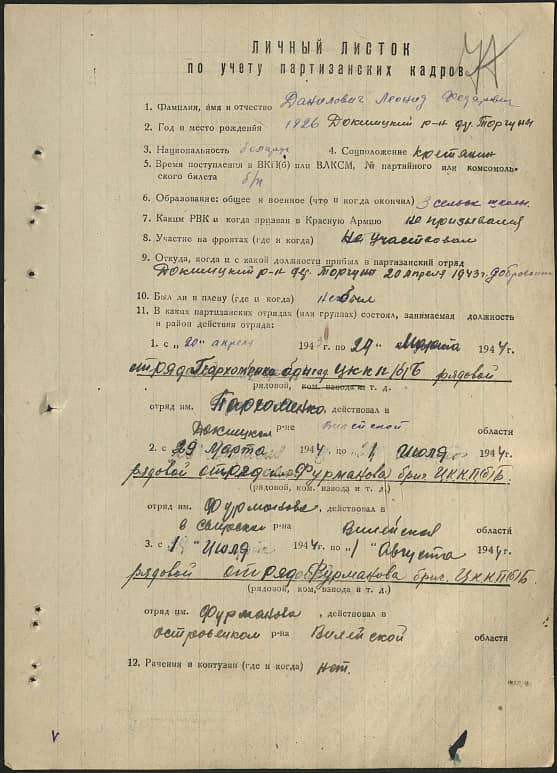 ЛИЧНЫЙ ЛИСТОК
по учету партизанских кадров
1. Фамилия, имя и отчество Данилович Леонид
2. Год и место рождения 1926 Докшицкий р-н д. Торгуны
3. Национальность белорус 4. Соцположение крестянин
5. Время поступления в ВКП(б) или ВЛКСМ, № партийного или комсомоль-
ского билета б/п
6. Образование: общее и военное (что и когда окончил) 3 сельск школы.
7. Каким РВК и когда призван в Красную Армию Не призывался
8. Участие на фронтах (где и когда) Не участвовал
9. Откуда, когда и с какой должности прибыл в партизанский отряд
Докшицкий р-н д. Торгуны 20 апреля 1943 г.
10. Был ли в плену (где и когда) Не был
11. В каких партизанских отрядах (или группах) состоял, занимаемая должность
и район действия отряда:
1. с „20“ апреля 1943 г. по 29 Марта 1944 г.
отряда Пархоменко бригад ЦККП(б)Б рядовой
рядовой, ком. взвода и т. д.
отряд им. Пархоменко, действовал в
Докшицком р-не Вилейской области
2. с 29 Марта 1944 г. по 1 Июля 1944 г.
рядовой отряда Фурманова бриг. ЦККП(б)Б.
(рядовой, ком. взвода и т. д.)
отряд им. Фурманова, действовал в
в Свирском р-на Вилейская области
3. с 1 Июля 1944 г. по „1“ Августа 1944 г.
рядовой отряда Фурманова бриг. ЦККП(б)Б.
(рядовой, ком. взвода и т. д.)
отряд им. Фурманова, действовал в
островецком р-на Вилейской области
12. Ранения и контузии (где и когда) нет.